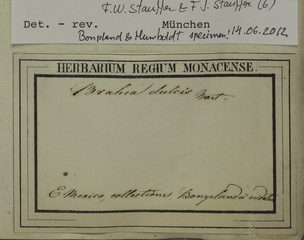 F.W. Stauffer & F.J. Stauffer (6)
Det. - rev. München
Bonpland & Humboldt specimen, 14.06.2012
HERBARIUM REGIUM MONACENSE.
Brahea dulcis Mart.
E Mexico, collectione Bonplandi